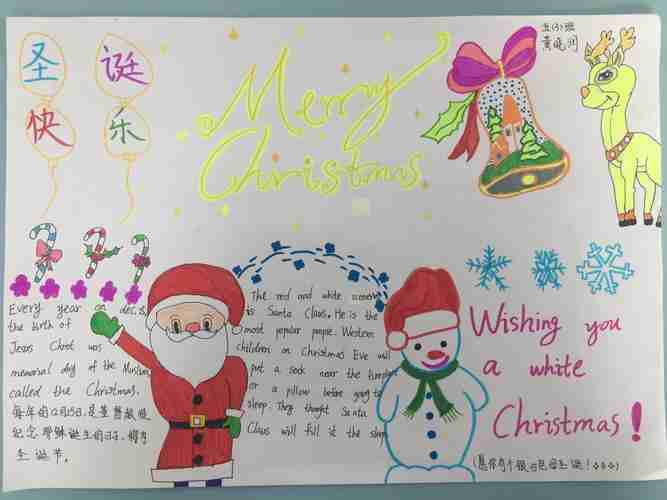 圣 诞
快 乐
Merry
Christmas
五(3)班
黄晓
Every year on dec.25,
the birth of
Jesus Christ was
memorial day of the
called the Christmas.
每年12月25日,是基督教徒
纪念耶稣诞生的日子,
圣诞节。
The red and white
is Santa Claus. He is the
most popular people. Western
children on Christmas Eve will
put a sock near the
or a pillow before going to
sleep. They thought Santa
Claus will fill it the
Wishing you
a white
Christmas!
(愿你有个银白色的圣诞!